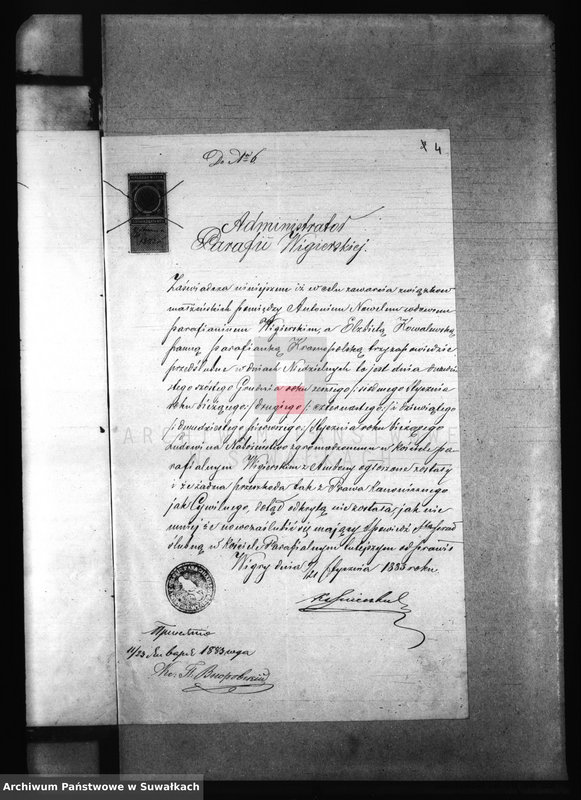 4
Do No 6.
1883
Administrator
Parafii Wigierskiej.
Zaświadcza niniejszem iż w celu zawarcia związków
małżeńskich pomiędzy Antonim Nowelem wdowcem
parafianinem Wigierskim, a Elżbietą Kowalewską
panną parafianką Krasnopolską trzy zapowiedzie
przedślubne w dniach Niedzielnych to jest dnia
szóstego Grudnia roku zeszłego /: siódmego Stycznia
roku bieżącego :/ drugiego /: czternastego :/ i dziewiątego
/: dwudziestego pierwszego :/ Stycznia roku bieżącego
Ludowi na Nabożeństwo zgromadzonemu w kościele pa-
rafialnym Wigierskim z Ambony ogłoszone zostały
i że żadna przeszkoda tak z Prawa kanonicznego
jak Cywilnego, dotąd odkrytą nie została, jak nie
mniej że nowozaślubić się mający spowiedź
ślubną w kościele Parafialnym tutejszym odprawił
Wigry dnia 9/21 Stycznia 1883 roku.
11/23 Января 1883 года
Archiwum Państwowe w Suwałkach